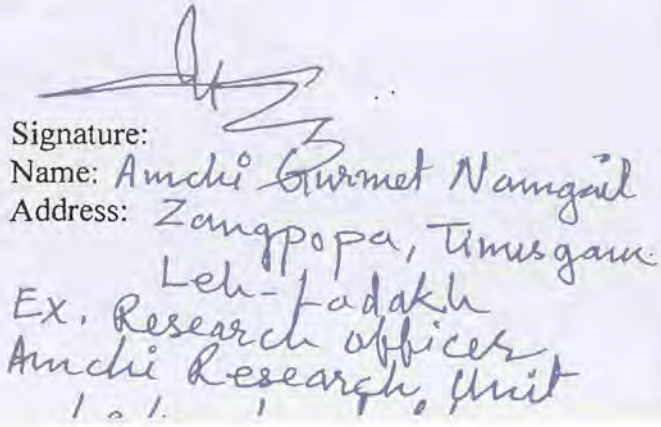 Signature:
Name: Amchi Gurmet Namgail
Address: Zangpopa, Timusgam
Leh-Ladakh
Ex. Research officer,
Amchi Research, Unit